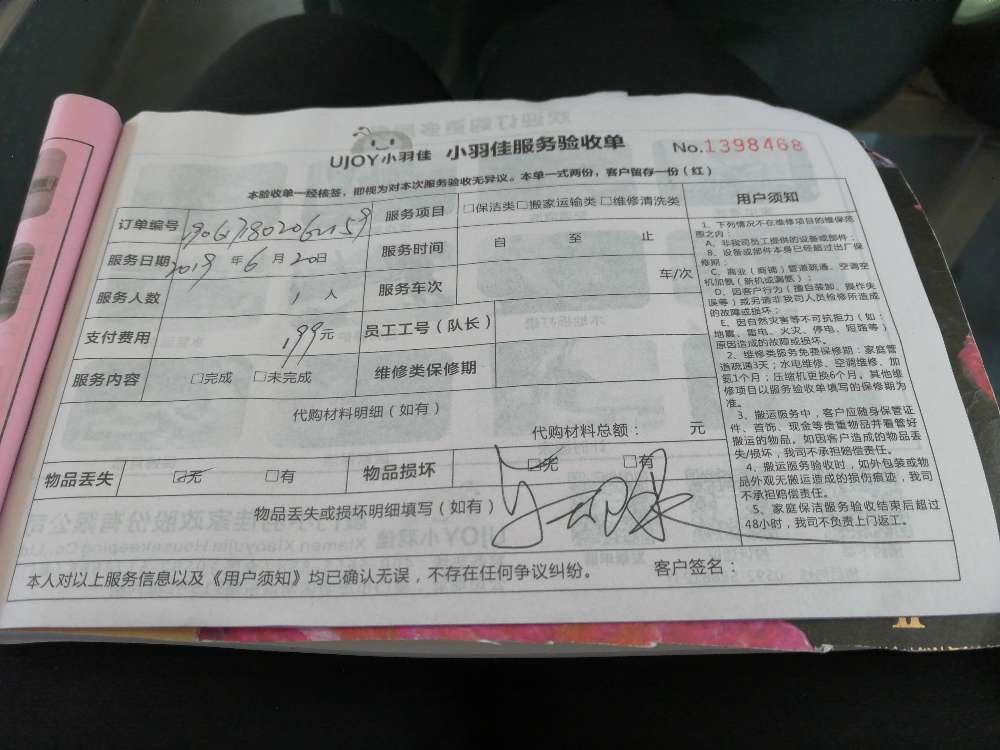 UJOY小羽佳 小羽佳服务验收单 No.1398468
本验收单一经核签，即视为对本次服务验收无异议。本单一式两份，客户留存一份（红）
订单编号 服务项目 □保洁类□搬家运输类□维修清洗类
服务日期 2019 年 6 月 20 日 服务时间 自 至 止
服务人数 1 人 服务车次 车/次
支付费用 199 元 员工工号（队长）
服务内容 □完成 □未完成 维修类保修期
代购材料明细（如有）
代购材料总额： 元
物品丢失 ☑无 □有 物品损坏 ☑无 □有
物品丢失或损坏明细填写（如有）
本人对以上服务信息以及《用户须知》均已确认无误，不存在任何争议纠纷。 客户签名：
用户须知
1、下列情况不在维修项目的维保范
围之内：
A、非我司员工提供的设备或部件；
B、设备或部件本身已经超过出厂保
修期；
C、商业（商铺）管道疏通、空调空
机加氨（新机或漏氨）；
D、因客户行为（擅自装卸、操作失
误等）或另请非我司人员检修所造成
的故障或损坏；
E、因自然灾害等不可抗拒力（如：
地震、雷电、火灾、停电、短路等）
原因造成的故障或损坏。
2、维修类服务免费保修期：家庭管
道疏通3天；水电维修、空调维修、加
氨1个月；压缩机更换6个月。其他维
修项目以服务验收单填写的保修期为
准。
3、搬运服务中，客户应随身保管证
件、首饰、现金等贵重物品并看管好
搬运的物品。如因客户造成的物品丢
失/损坏，我司不承担赔偿责任。
4、搬运服务验收时，如外包装或物
品外观无搬运造成的损伤痕迹，我司
不承担赔偿责任。
5、家庭保洁服务验收结束后超过
48小时，我司不负责上门返工。